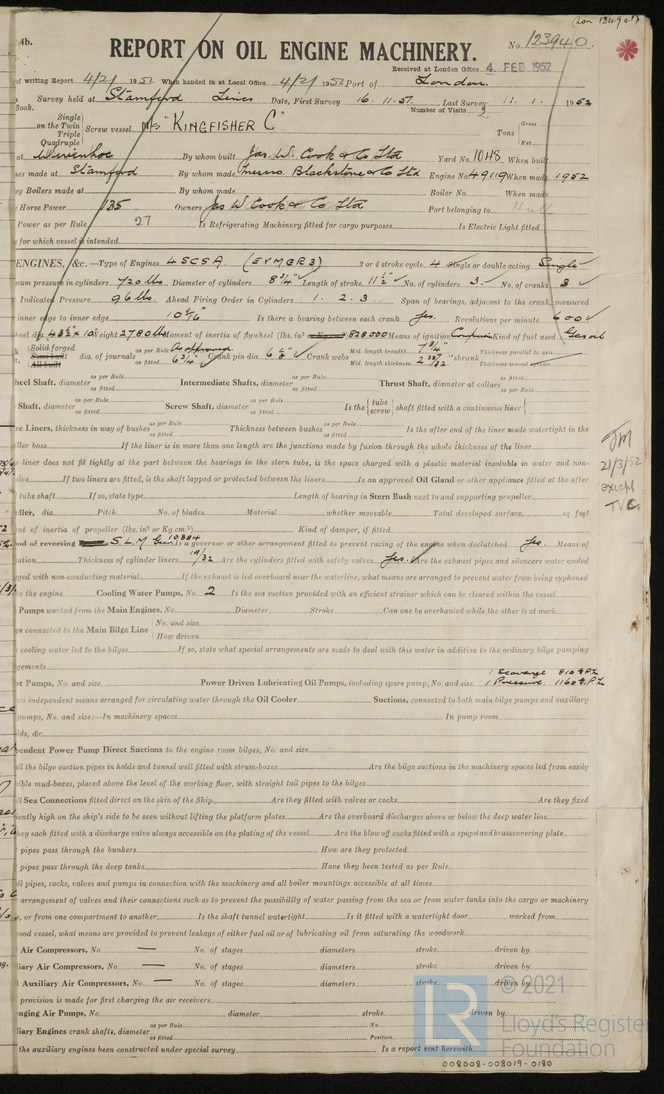 (Lon 123940)
4b.
REPORT ON OIL ENGINE MACHINERY.
No. 123940.
Received at London Office 4 FEB 1952
of writing Report 4/2/ 1952 When handed in at Local Office 4/2/ 1952 Port of London.
Survey held at Stamford Lincs Date, First Survey 16.11.51. Last Survey 11.1. 1952
Book. Number of Visits 3
Single
on the Twin
Triple
Quadruple
Screw vessel M/S "KINGFISHER C" Tons Gross
Net
at Wivenhoe By whom built Jas. W. Cook & Co Ltd Yard No. 1048 When built
nes made at Stamford By whom made Messrs. Blackstone & Co Ltd Engine No. 49119 When made 1952
y Boilers made at By whom made Boiler No. When made
Horse Power 135 Owners Jas W Cook & Co Ltd Port belonging to Hull
Power as per Rule 27 Is Refrigerating Machinery fitted for cargo purposes. Is Electric Light fitted
for which vessel is intended
ENGINES, &c.—Type of Engines 4SCSA. (EVMGR3) 2 or 4 stroke cycle 4 Single or double acting Single
num pressure in cylinders 720 lbs Diameter of cylinders 8 3/4" Length of stroke 11 1/2" No. of cylinders 3. No. of cranks 3
Indicated Pressure 96 lbs. Ahead Firing Order in Cylinders 1. 2. 3 Span of bearings, adjacent to the crank, measured
inner edge to inner edge 10 5/16" Is there a bearing between each crank Yes. Revolutions per minute 600
heel dia. 43 1/2" x 10" Weight 2780 lbs Moment of inertia of flywheel (lbs. in² or Kg.cm.²) 828000 Means of ignition Compression Kind of fuel used Gas oil
Solid forged
Semi built
All built
dia. of journals as per Rule As approved as fitted 6 3/4" Crank pin dia. 6 1/8" Crank webs Mid. length breadth 7 3/4" Mid. length thickness 2 23/32" shrunk Thickness parallel to axis Thickness around eyehole
heel Shaft, diameter as per Rule as fitted Intermediate Shafts, diameter as per Rule as fitted Thrust Shaft, diameter at collars as fitted as per Rule
Shaft, diameter as per Rule as fitted Screw Shaft, diameter as per Rule as fitted Is the { tube screw } shaft fitted with a continuous liner {
ze Liners, thickness in way of bushes as per Rule as fitted Thickness between bushes as per Rule as fitted Is the after end of the liner made watertight in the
ller boss If the liner is in more than one length are the junctions made by fusion through the whole thickness of the liner
e liner does not fit tightly at the part between the bearings in the stern tube, is the space charged with a plastic material insoluble in water and non-
sive If two liners are fitted, is the shaft lapped or protected between the liners Is an approved Oil Gland or other appliance fitted at the after
f tube shaft If so, state type Length of bearing in Stern Bush next to and supporting propeller
eller, dia. Pitch No. of blades Material whether moveable Total developed surface sq. feet
ent of inertia of propeller (lbs. in² or Kg.cm.²) Kind of damper, if fitted
hod of reversing S.L.M. Gear 10884 Is a governor or other arrangement fitted to prevent racing of the engine when declutched Yes. Means of
ation Thickness of cylinder liners 19/32 Are the cylinders fitted with safety valves Yes. Are the exhaust pipes and silencers water cooled
gged with non-conducting material If the exhaust is led overboard near the waterline, what means are arranged to prevent water from being syphoned
to the engine Cooling Water Pumps, No. 2 Is the sea suction provided with an efficient strainer which can be cleared within the vessel
Pumps worked from the Main Engines, No. Diameter Stroke Can one be overhauled while the other is at work
ps connected to the Main Bilge Line { No. and size
How driven
cooling water led to the bilges If so, state what special arrangements are made to deal with this water in addition to the ordinary bilge pumping
gements
st Pumps, No. and size Power Driven Lubricating Oil Pumps, including spare pump, No. and size 1 Scavenge 810 G.P.H.
1 Pressure. 1160 G.P.H.
wo independent means arranged for circulating water through the Oil Cooler Suctions, connected to both main bilge pumps and auxiliary
pumps, No. and size:—In machinery spaces In pump room
lds, &c.
endent Power Pump Direct Suctions to the engine room bilges, No. and size
ll the bilge suction pipes in holds and tunnel well fitted with strum-boxes Are the bilge suctions in the machinery spaces led from easily
ible mud-boxes, placed above the level of the working floor, with straight tail pipes to the bilges
ll Sea Connections fitted direct on the skin of the Ship Are they fitted with valves or cocks Are they fixed
iently high on the ship's side to be seen without lifting the platform plates Are the overboard discharges above or below the deep water line
they each fitted with a discharge valve always accessible on the plating of the vessel Are the blow off cocks fitted with a spigot and brass covering plate
pipes pass through the bunkers How are they protected
pipes pass through the deep tanks Have they been tested as per Rule
ll pipes, cocks, valves and pumps in connection with the machinery and all boiler mountings accessible at all times
arrangement of valves and their connections such as to prevent the possibility of water passing from the sea or from water tanks into the cargo or machinery
s, or from one compartment to another Is the shaft tunnel watertight Is it fitted with a watertight door worked from
ood vessel, what means are provided to prevent leakage of either fuel oil or of lubricating oil from saturating the woodwork
Air Compressors, No. — No. of stages diameters stroke driven by
liary Air Compressors, No. — No. of stages diameters stroke driven by
Auxiliary Air Compressors, No. — No. of stages diameters stroke driven by
provision is made for first charging the air receivers
enging Air Pumps, No. diameter stroke driven by
liary Engines crank shafts, diameter as per Rule as fitted No. Position
the auxiliary engines been constructed under special survey Is a report sent herewith
JM
21/3/52
except
TVC.
© 2021
LR
Lloyd's Register
Foundation
008008-008019-0180